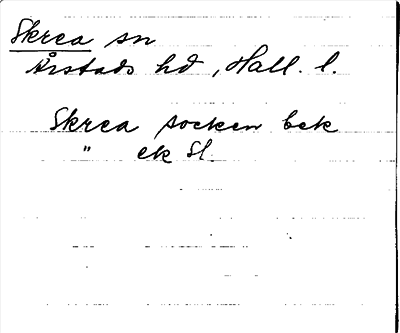 Skrea sn
Årstads hd, Hall. l.
Skrea socken bek
" ek Sl.